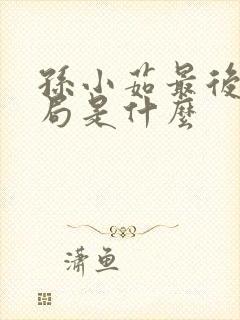 孫小茹最後
局是什麼
潇鱼